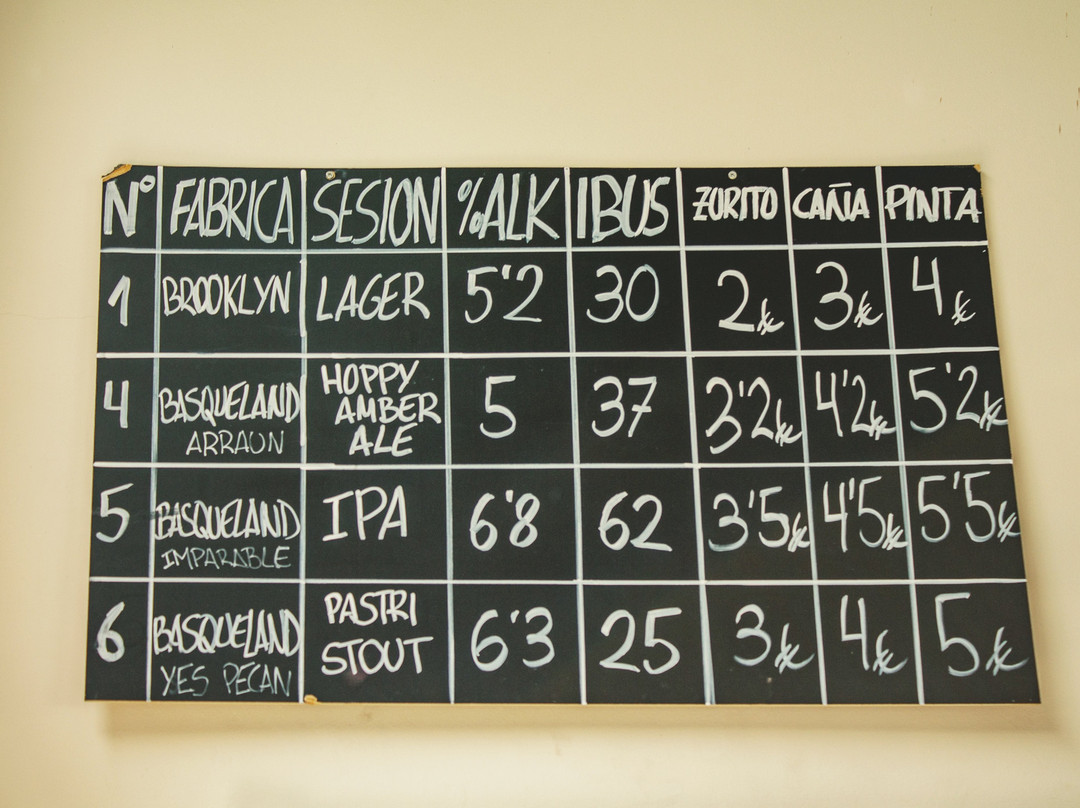 Nº FABRICA SESION %ALK IBUS ZURITO CAÑA PINTA
1 BROOKLYN LAGER 5'2 30 2€ 3€ 4€
4 BASQUELAND ARRAUN HOPPY AMBER ALE 5 37 3'2€ 4'2€ 5'2€
5 BASQUELAND IMPARABLE IPA 6'8 62 3'5€ 4'5€ 5'5€
6 BASQUELAND YES PECAN PASTRI STOUT 6'3 25 3€ 4€ 5€